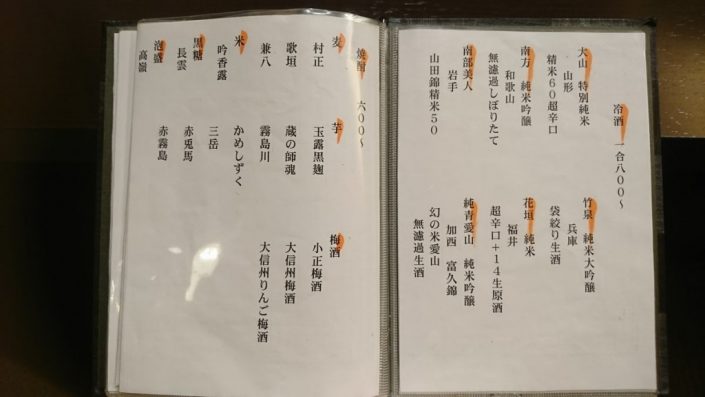 冷酒 一合八〇〇～
大山 特別純米
山形
精米60超辛口
南方 純米吟醸
和歌山
無濾過しぼりたて
南部美人
岩手
山田錦精米50
竹泉 純米大吟醸
兵庫
袋絞り生酒
花垣 純米
福井
超辛口+14生原酒
純青愛山 純米吟醸
加西 富久錦
幻の米愛山
無濾過生酒
焼酎 六〇〇～
麦
村正
歌垣
兼八
米
吟香露
黒糖
長雲
泡盛
高嶺
芋
玉露黒麹
蔵の師魂
霧島川
かめしずく
三岳
赤兎馬
赤霧島
梅酒
小正梅酒
大信州梅酒
大信州りんご梅酒